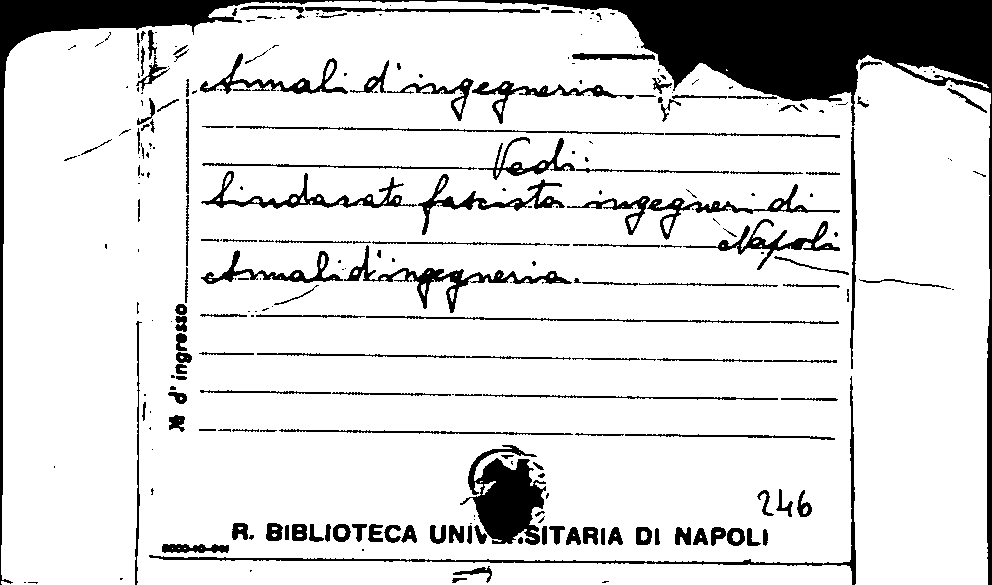 Annali d'ingegneria.
Vedi:
Sindacato fascista ingegneri di
Napoli
Annali d'ingegneria.
№ d'ingresso
246
R. BIBLIOTECA UNIVERSITARIA DI NAPOLI